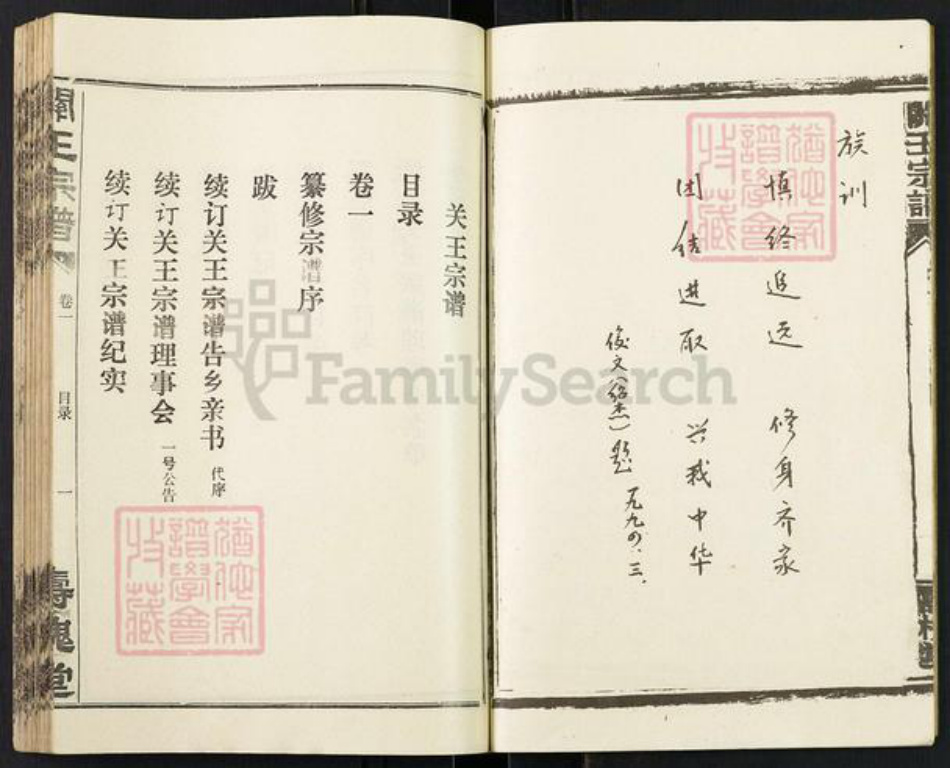 族训
慎终追远 修身齐家
团结进取 兴我中华
俊文(绍杰)题
一九九四.三.
关王宗谱
目录
卷一
纂修宗谱序
跋
续订关王宗谱告乡亲书 代序
续订关王宗谱理事会 一号公告
续订关王宗谱纪实
關王宗譜
卷一
目录
一
壽槐堂
關王宗譜
犹他家
谱學會
收藏
犹他家
谱學會
收藏
FamilySearch